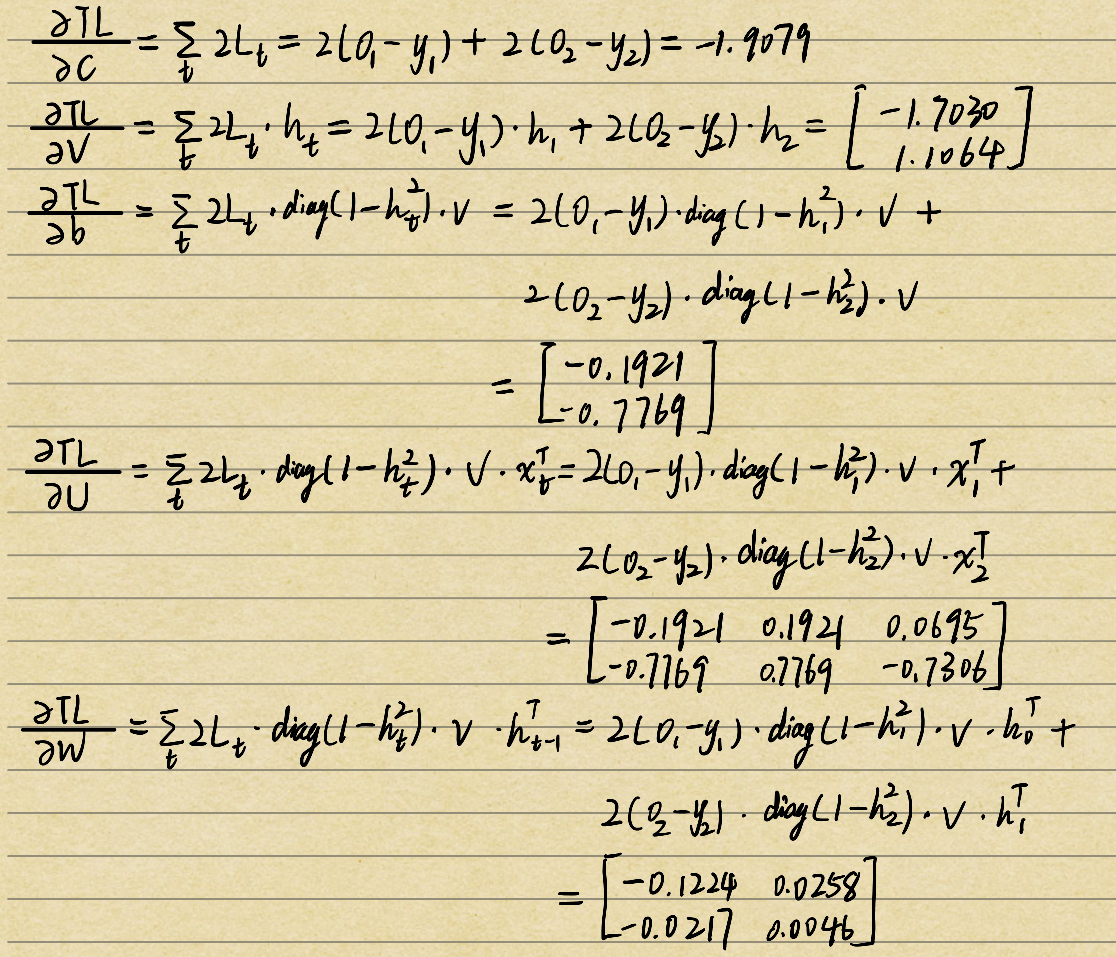 ∂TL/∂C = Σ_t 2L_t = 2(O_1 - y_1) + 2(O_2 - y_2) = -1.9079
∂TL/∂V = Σ_t 2L_t · h_t = 2(O_1 - y_1) · h_1 + 2(O_2 - y_2) · h_2 = [-1.7030; 1.1064]
∂TL/∂b = Σ_t 2L_t · diag(1 - h_t^2) · V = 2(O_1 - y_1) · diag(1 - h_1^2) · V +
2(O_2 - y_2) · diag(1 - h_2^2) · V
= [-0.1921; -0.7769]
∂TL/∂U = Σ_t 2L_t · diag(1 - h_t^2) · V · x_t^T = 2(O_1 - y_1) · diag(1 - h_1^2) · V · x_1^T +
2(O_2 - y_2) · diag(1 - h_2^2) · V · x_2^T
= [-0.1921 0.1921 0.0695; -0.7769 0.7769 -0.7306]
∂TL/∂W = Σ_t 2L_t · diag(1 - h_t^2) · V · h_{t-1}^T = 2(O_1 - y_1) · diag(1 - h_1^2) · V · h_0^T +
2(O_2 - y_2) · diag(1 - h_2^2) · V · h_1^T
= [-0.1224 0.0258; -0.0217 0.0046]